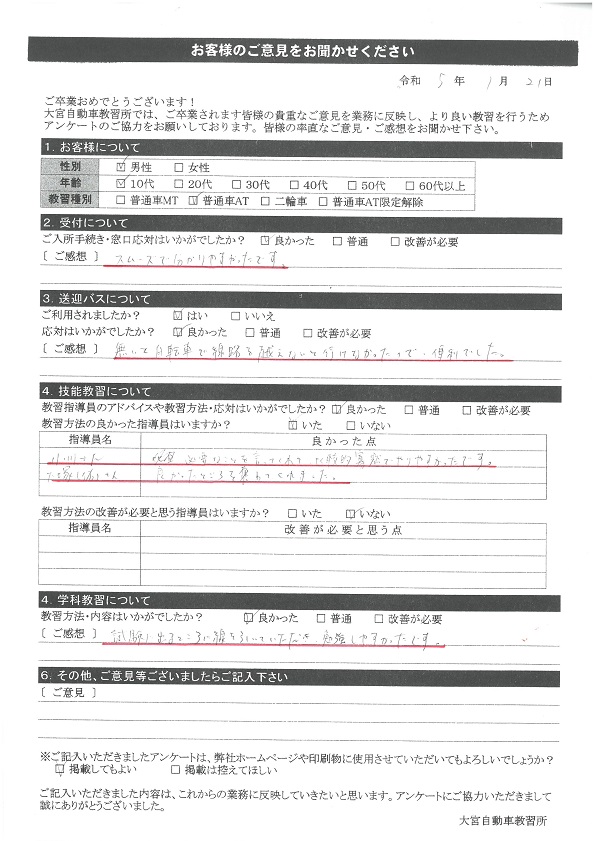 お客様のご意見をお聞かせください
令和 5 年 1 月 21 日
ご卒業おめでとうございます!
大宮自動車教習所では、ご卒業されます皆様の貴重なご意見を業務に反映し、より良い教習を行うため
アンケートのご協力をお願いしております。皆様の率直なご意見・ご感想をお聞かせ下さい。
1. お客様について
性別 ☑ 男性 □ 女性
年齢 ☑ 10代 □ 20代 □ 30代 □ 40代 □ 50代 □ 60代以上
教習種別 □ 普通車MT ☑ 普通車AT □ 二輪車 □ 普通車AT限定解除
2. 受付について
ご入所手続き・窓口応対はいかがでしたか? ☑ 良かった □ 普通 □ 改善が必要
〔 ご感想 〕 スムーズで分かりやすかったです。
3. 送迎バスについて
ご利用されましたか? ☑ はい □ いいえ
応対はいかがでしたか? ☑ 良かった □ 普通 □ 改善が必要
〔 ご感想 〕 無いと自転車で線路を越えないと行けなかったので、便利でした。
4. 技能教習について
教習指導員のアドバイスや教習方法・応対はいかがでしたか? ☑ 良かった □ 普通 □ 改善が必要
教習方法の良かった指導員はいますか? ☑ いた □ いない
指導員名 良かった点
小川さん 必要なことを言ってくれて やりやすかったです。
さん 良かったところを褒めてくれました。
教習方法の改善が必要と思う指導員はいますか? □ いた ☑ いない
指導員名 改善が必要と思う点
4. 学科教習について
教習方法・内容はいかがでしたか? ☑ 良かった □ 普通 □ 改善が必要
〔 ご感想 〕 試験に出るところに線を引いていただき、勉強しやすかったです。
6. その他、ご意見等ございましたらご記入下さい
〔 ご意見 〕
※ご記入いただきましたアンケートは、弊社ホームページや印刷物に使用させていただいてもよろしいでしょうか?
☑ 掲載してもよい □ 掲載は控えてほしい
ご記入いただきました内容は、これからの業務に反映していきたいと思います。アンケートにご協力いただきまして
誠にありがとうございました。
大宮自動車教習所